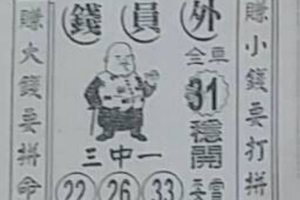 錢員外
賺小錢要打拼
賺大錢要拼命
全車
31
穩開
三中一
22 26 33